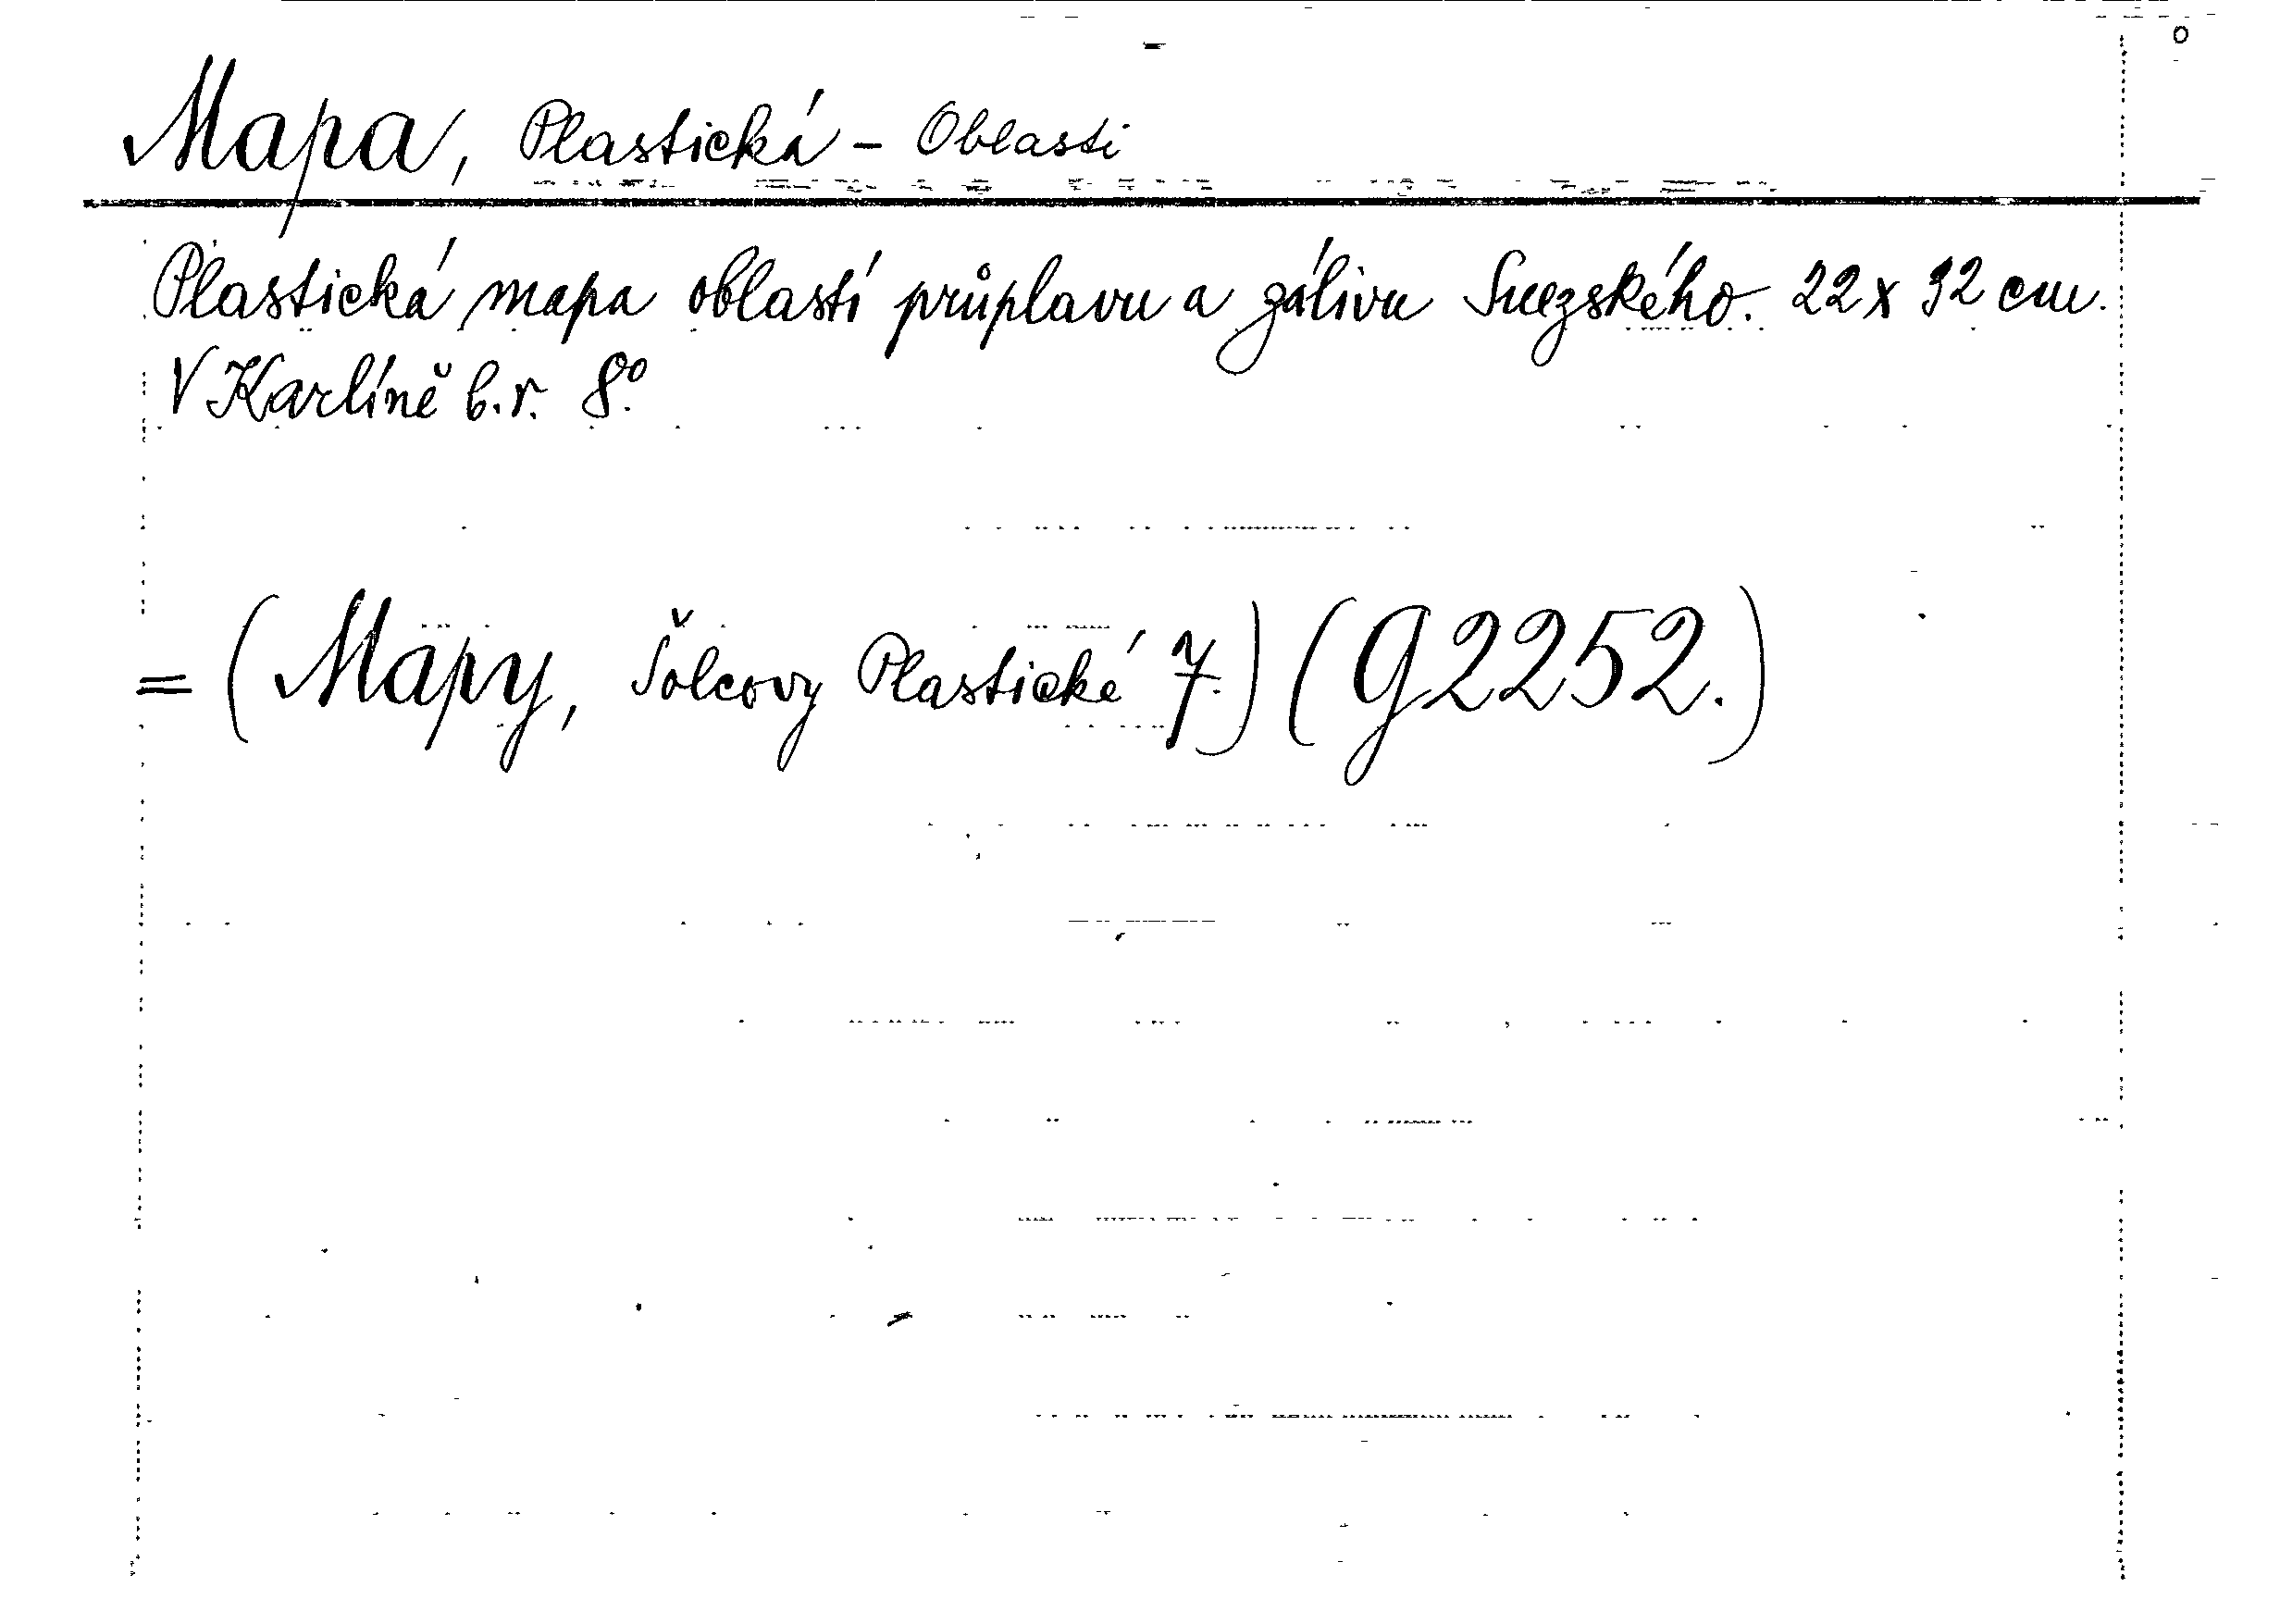 Mapa, Plastická - Oblasti
Plastická mapa oblastí průplavu a zálivu Suezského. 22 x 32 cm.
V Karlíně b.r. 8º.
= (Mapy, Šolcovy Plastické 7.) (G2252.)